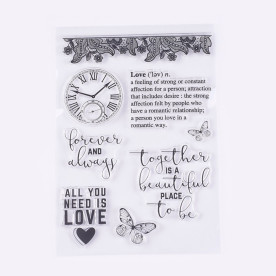 Love ('ləv) n.
a feeling of strong or constant
affection for a person; attraction
that includes desire : the strong
affection felt by people who
have a romantic relationship;
a person you love in a
romantic way.
forever
AND
always
together
IS A
beautiful
PLACE
to be
ALL YOU
NEED IS
LOVE